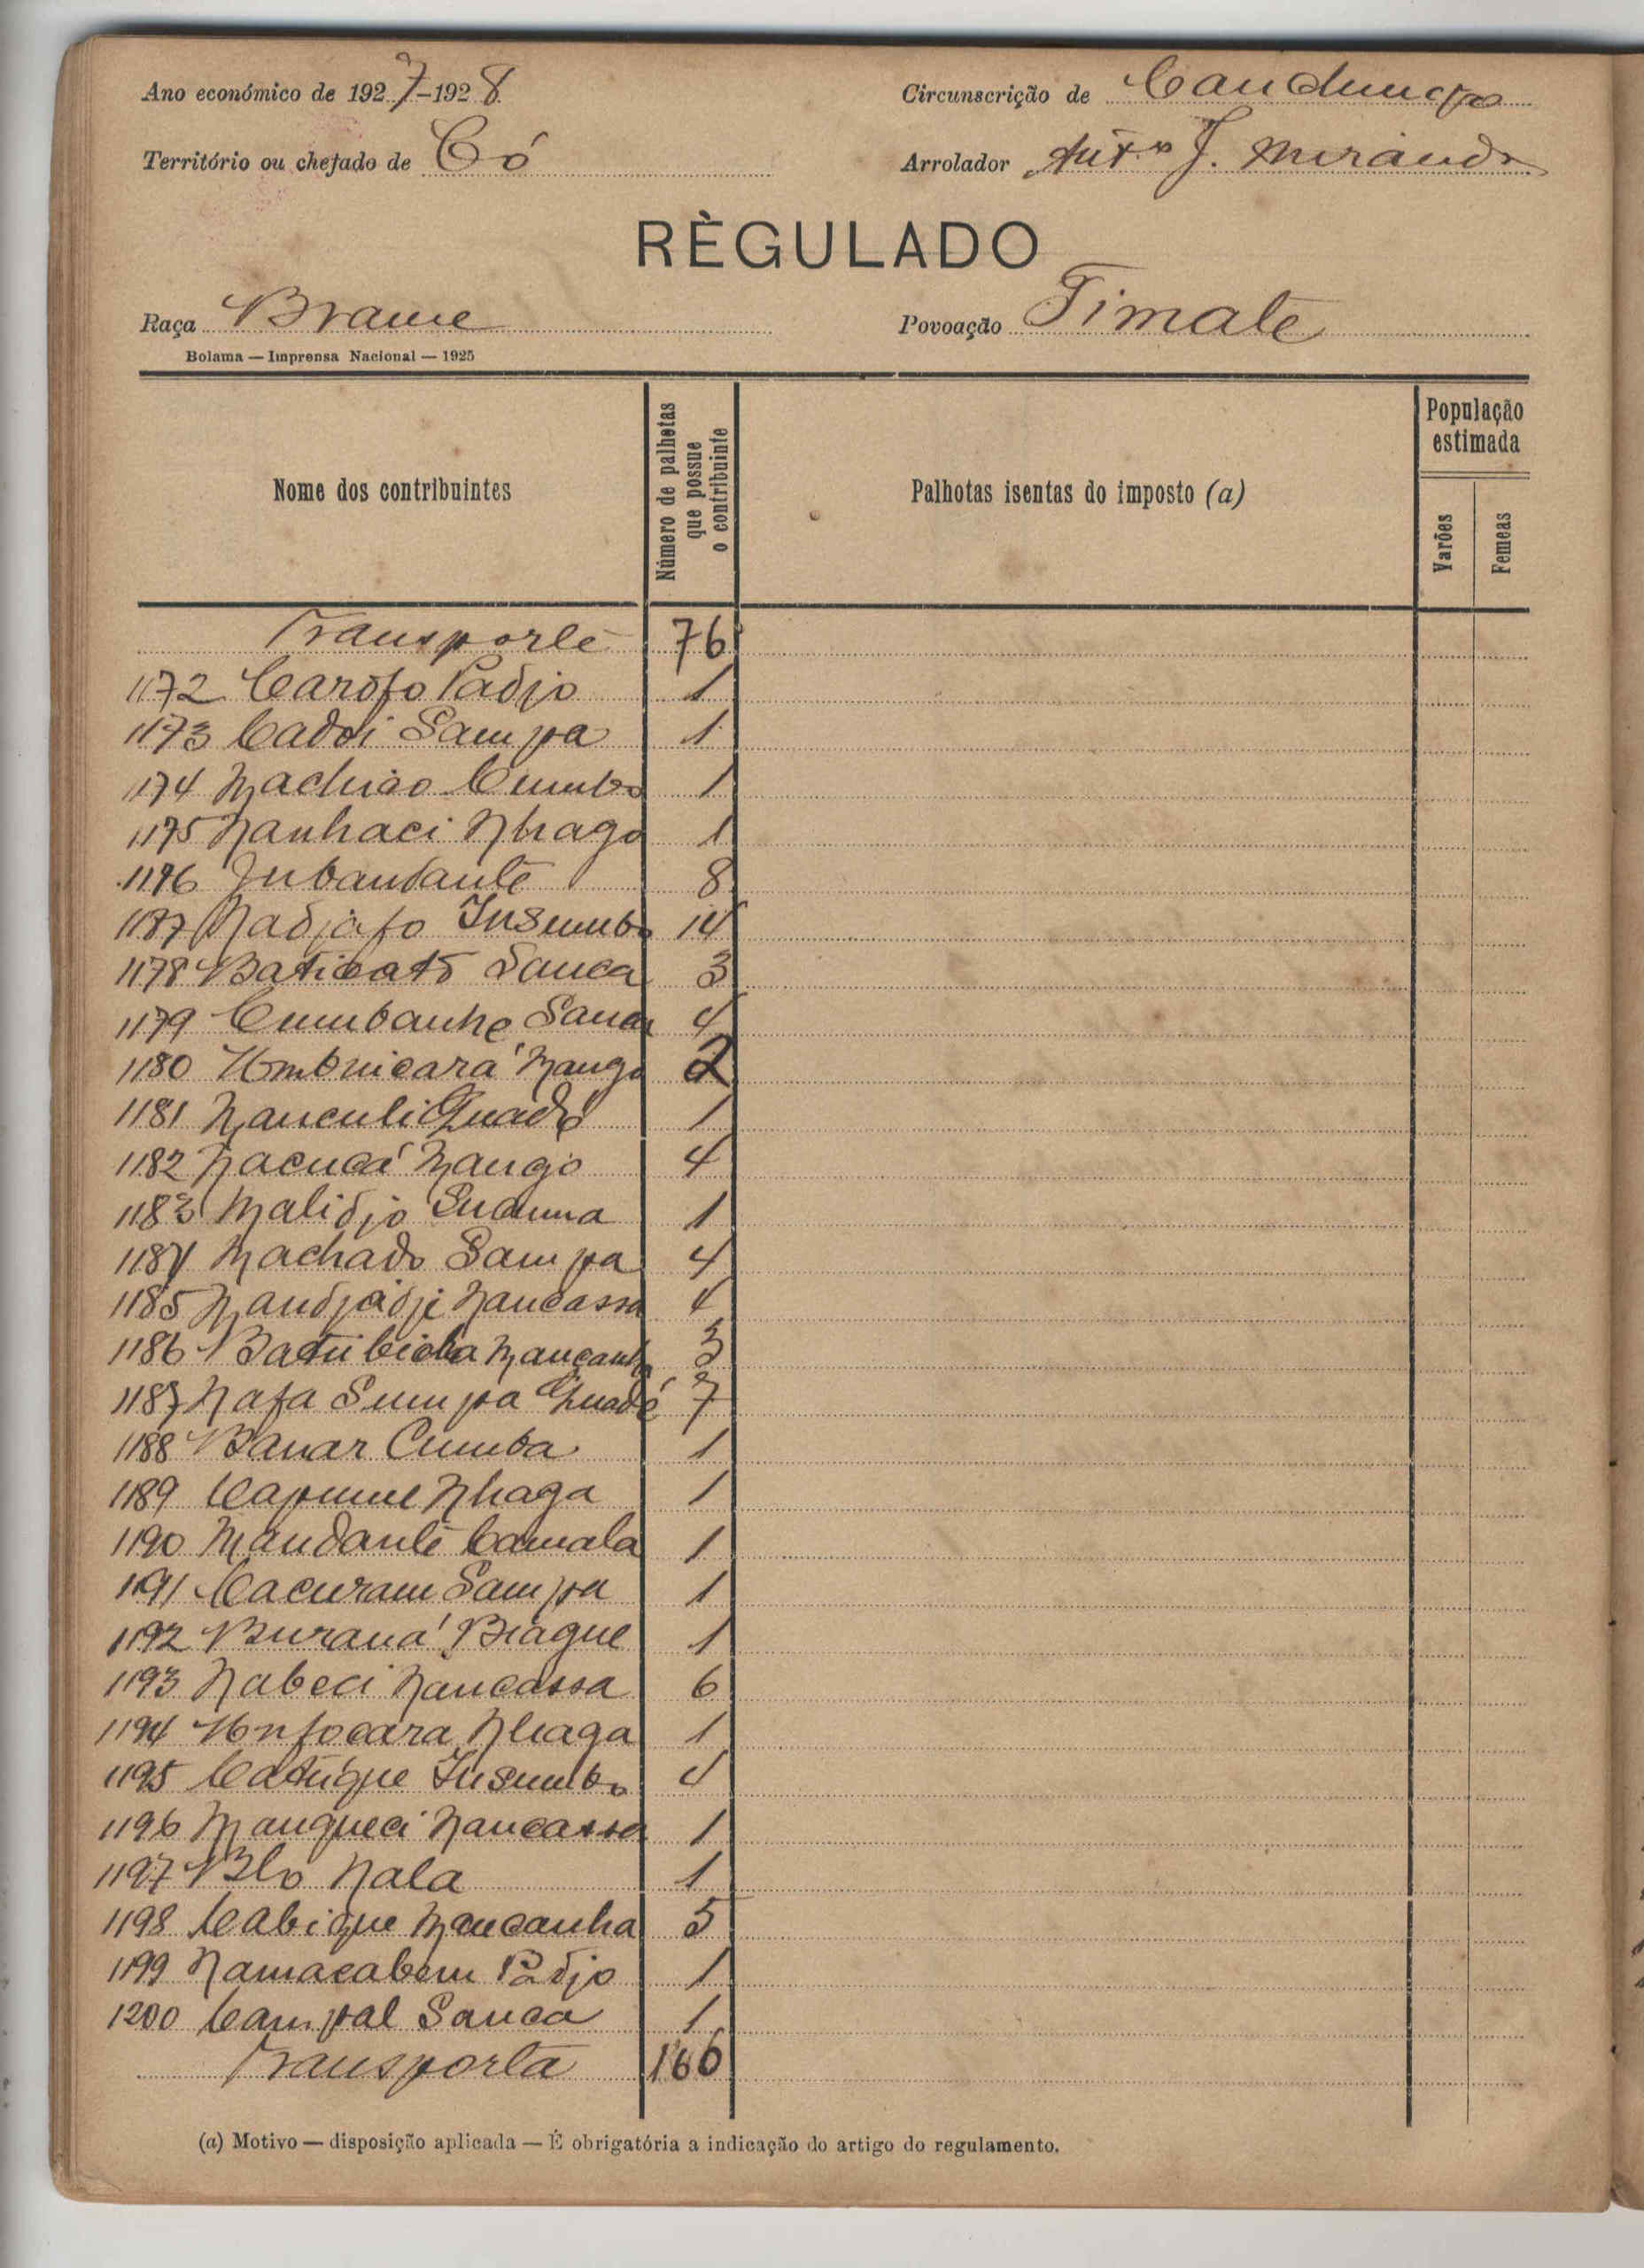 Ano económico de 1927-1928
Circunscrição de Canchungo
Território ou chefado de Có
Arrolador J. Miranda
RÈGULADO
Raça Brame
Povoação Timate
Bolama — Imprensa Nacional — 1925
Nome dos contribuintes
Número de palhotas que possue o contribuinte
Palhotas isentas do imposto (a)
População estimada
Varões
Femeas
Transporte 76
1172 Carofo Padjo 1
1173 Cadoi Sampa 1
1174 Machiao Cumba 1
1175 Nanhaci Nhaga 1
1176 Jubandante 8
1187 Nadjafo Insumbo 14
1178 Baticató Sanca 3
1179 Cumbanhe Sanca 4
1180 Umbuicará Mango 2
1181 Nanculi Quadé 1
1182 Nacucá Mango 4
1183 Malidjo 1
1184 Machado Sampa 4
1185 Mandjadji Nancassa 4
1186 Batu Mancanha 3
1187 Nafa Sumpa Quadé 7
1188 Banar Cumba 1
1189 Capume Nhaga 1
1190 Mandante Camala 1
1191 Cacuram Sampa 1
1192 Buraná Biague 1
1193 Nabeci Nancassa 6
1194 Unfocara Nhaga 1
1195 Catúque Insumbo 4
1196 Mangueci Nancassa 1
1197 Blo Nala 1
1198 Cabique Mancanha 5
1199 Namacabem Padjo 1
1200 Campal Sanca 1
Transporta 166
(a) Motivo — disposição aplicada — É obrigatória a indicação do artigo do regulamento.